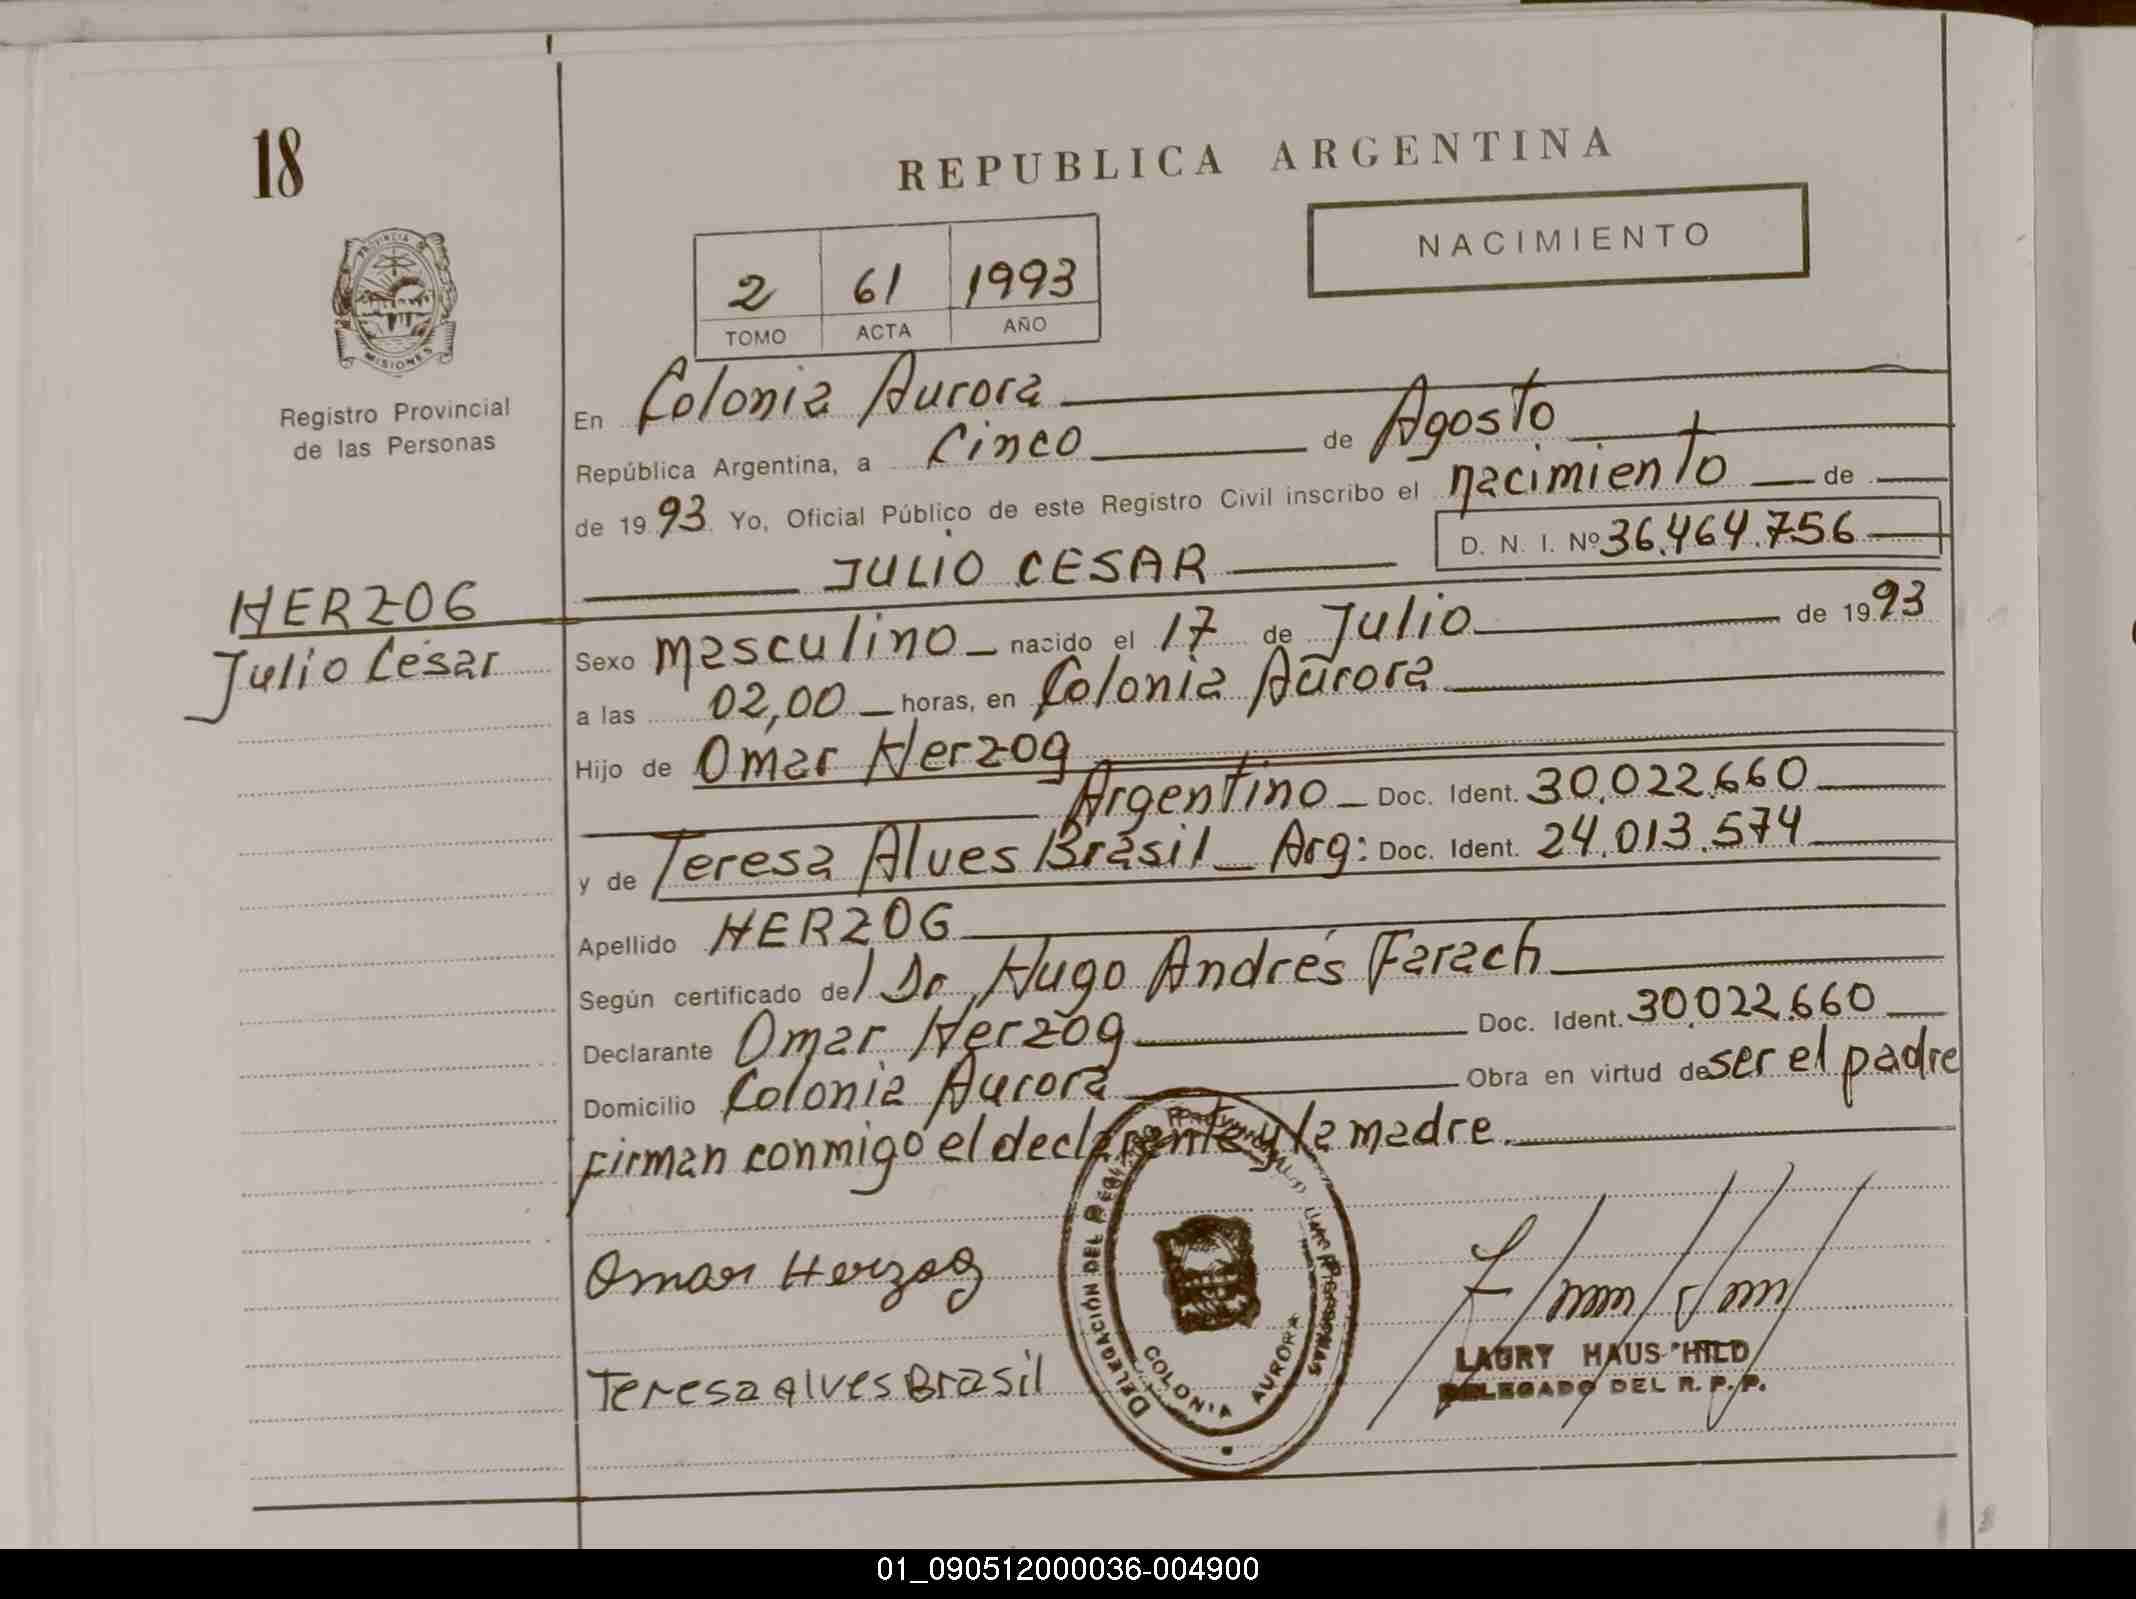 18
REPUBLICA ARGENTINA
NACIMIENTO
2 61 1993
TOMO ACTA AÑO
PROVINCIA DE
MISIONES
Registro Provincial
de las Personas
En Colonia Aurora
República Argentina, a Cinco de Agosto
de 1993 Yo, Oficial Público de este Registro Civil inscribo el nacimiento de
D. N. I. Nº 36.464.756
JULIO CESAR
HERZOG
Julio Cesar
Sexo masculino nacido el 17 de Julio de 1993
a las 02,00 horas, en Colonia Aurora
Hijo de Omar Herzog
Argentino Doc. Ident. 30.022.660
y de Teresa Alves Brasil Arg: Doc. Ident. 24.013.574
Apellido HERZOG
Según certificado del Dr. Hugo Andrés Farach
Declarante Omar Herzog Doc. Ident. 30.022.660
Domicilio Colonia Aurora Obra en virtud de ser el padre
firman conmigo el declarante y la madre.
Omar Herzog
Teresa alves Brasil
DELEGACIÓN DEL
COLONIA AURORA
LAURY HAUS HILD
DELEGADO DEL R. P. P.
01_090512000036-004900